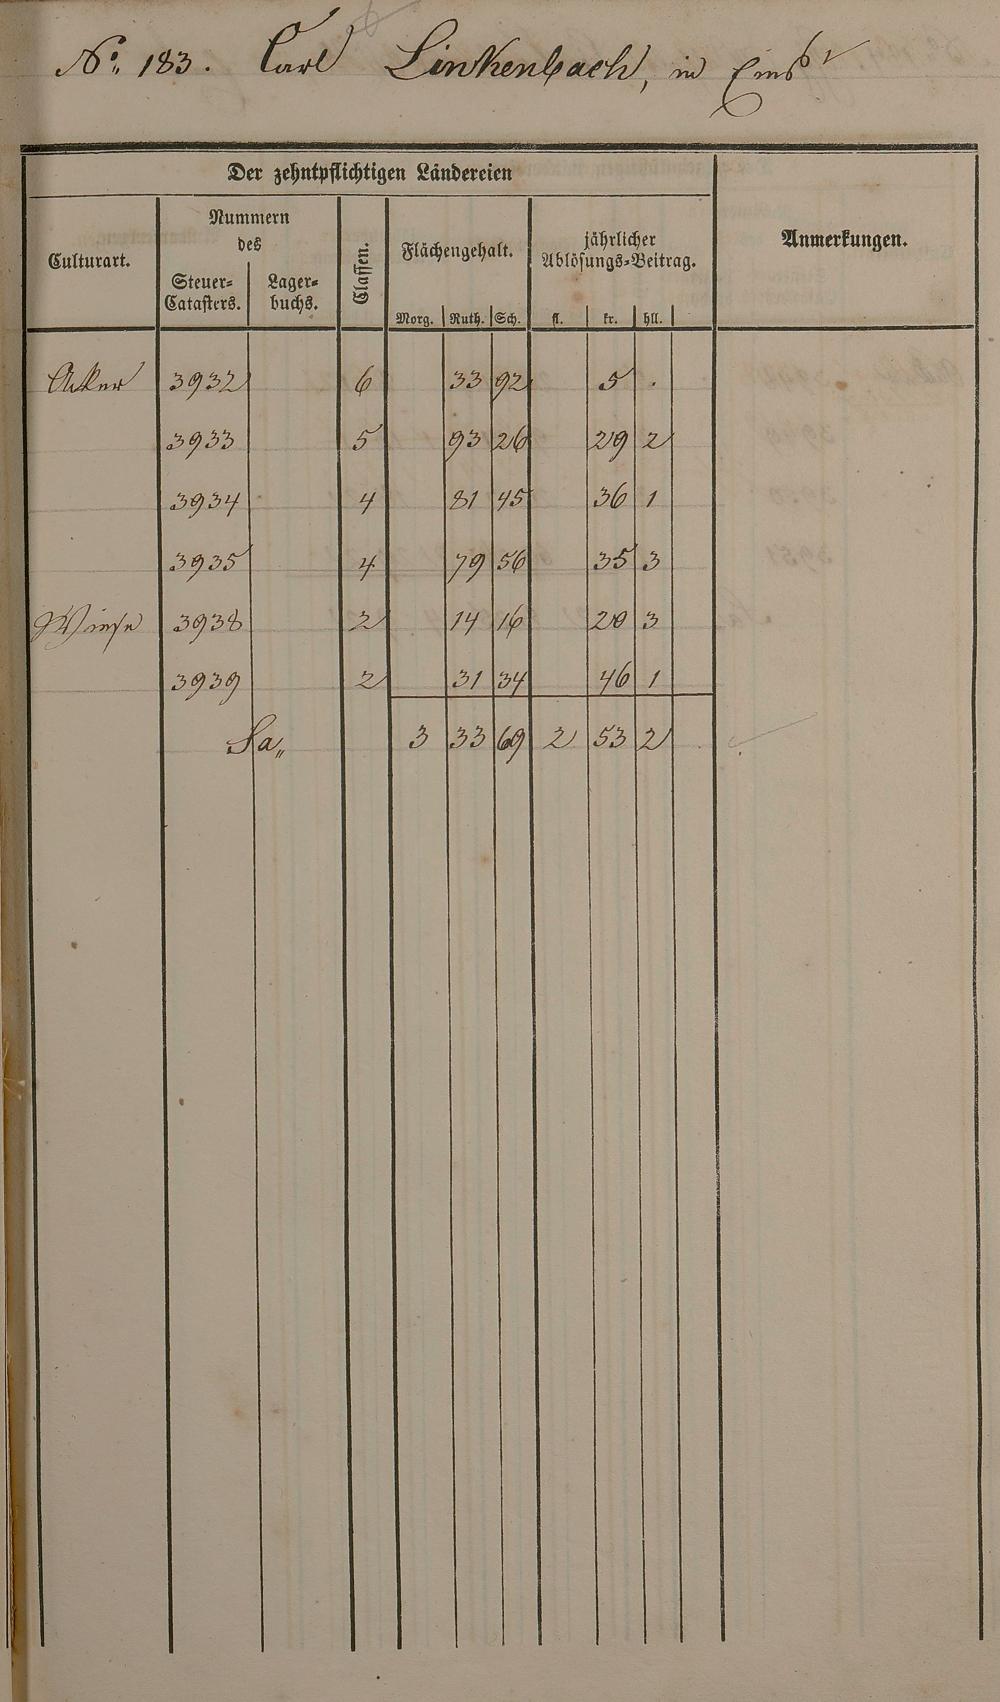 No. 183. Carl Linkenbach, in Ems
Der zehntpflichtigen Ländereien
Culturart.
Nummern
des
Steuer-
Catasters.
Lager-
buchs.
Classen.
Flächengehalt.
Morg. Ruth. Sch.
jährlicher
Ablösungs-Beitrag.
fl. kr. hll.
Anmerkungen.
Acker 3932 6 33 92 5 .
3933 5 93 26 29 2
3934 4 81 45 36 1
3935 4 79 56 35 3
Wiese 3938 2 14 16 20 3
3939 2 31 34 46 1
Sa„ 3 33 69 2 53 2